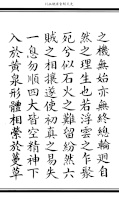 之機無始亦無終輪迴自
然之理生也若浮雲之乍聚
死兮似石火之難留紛然六
賊之相攘遂使初真之易失
一息勿順四大皆空精神下
入於黃泉形體相縈於蔓草